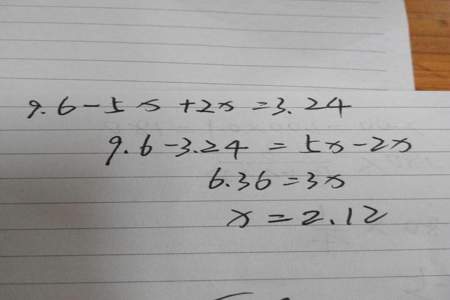 9.6-5x+2x=3.24
9.6-3.24=5x-2x
6.36=3x
x=2.12